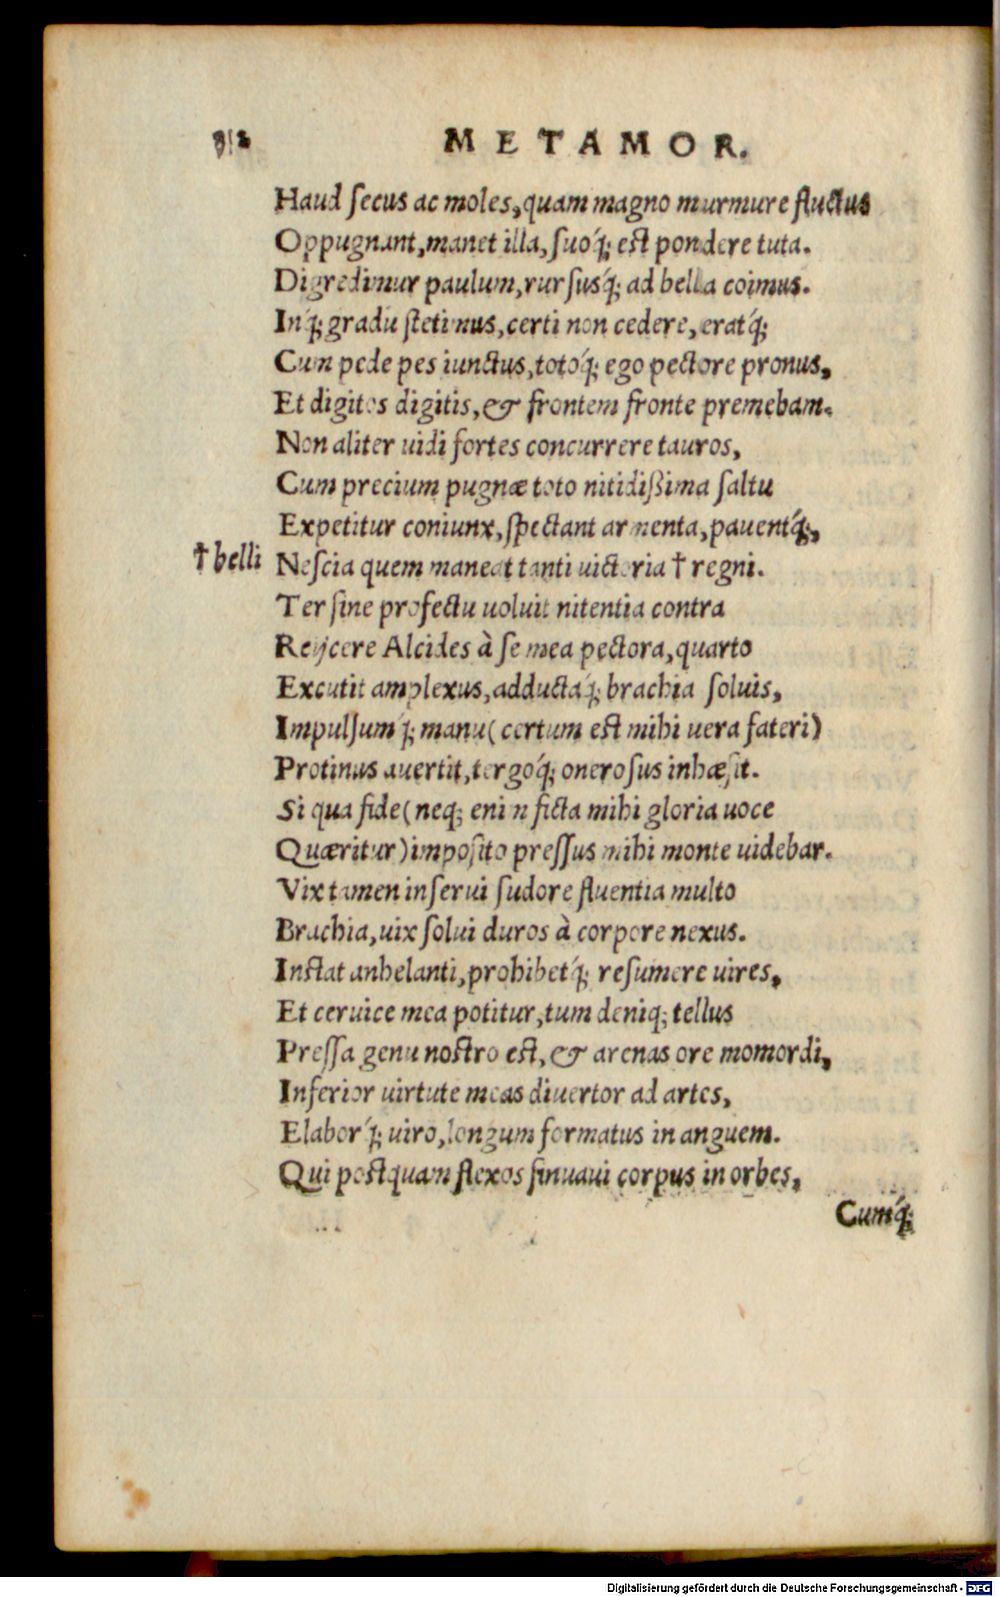 312 METAMOR.
Haud ſecus ac moles, quam magno murmure fluctus
Oppugnant, manet illa, ſuoq́; eſt pondere tuta.
Digredimur paulum, rurſusq́; ad bella coimus.
Inq́; gradu ſtetimus, certi non cedere, eratq́;
Cum pede pes iunctus, totoq́; ego pectore pronus,
Et digitos digitis, & frontem fronte premebam.
Non aliter uidi fortes concurrere tauros,
Cum precium pugnæ toto nitidißima ſaltu
Expetitur coniunx, ſpectant armenta, pauentq́;,
†belli Neſcia quem maneat tanti uictoria † regni.
Ter ſine profectu uoluit nitentia contra
Reijcere Alcides à ſe mea pectora, quarto
Excutit amplexus, adductaq́; brachia ſoluis,
Impulſumq́; manu (certum eſt mihi uera fateri)
Protinus auertit, tergoq́; oneroſus inhæſit.
Si qua fide (neq; enim ficta mihi gloria uoce
Quæritur) impoſito preſſus mihi monte uidebar.
Vix tamen inſerui ſudore fluentia multo
Brachia, uix ſolui duros à corpore nexus.
Inſtat anhelanti, prohibetq́; reſumere uires,
Et ceruice mea potitur, tum deniq; tellus
Preſſa genu noſtro eſt, & arenas ore momordi,
Inferior uirtute meas diuertor ad artes,
Elaborq́; uiro, longum formatus in anguem.
Qui poſtquam flexos ſinuaui corpus in orbes,
Cumq́;
Digitalisierung gefördert durch die Deutsche Forschungsgemeinschaft - DFG